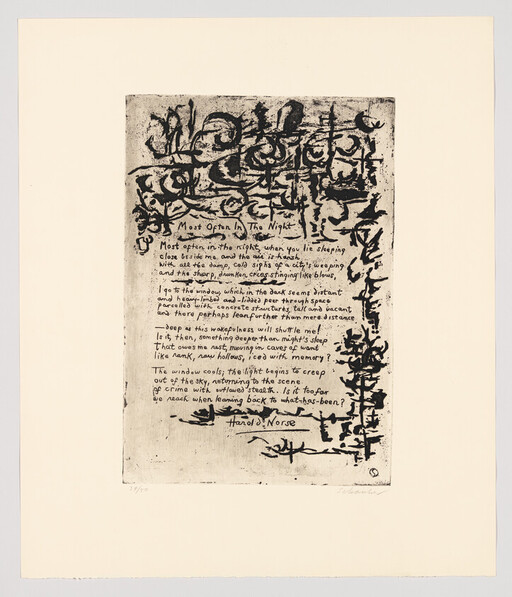 Most Often In The Night
Most often in the night, when you lie sleeping
close beside me and the air is harsh
with all the damp, cold sighs of a city's weeping
and the sharp, drunken cries stinging like blows,
I go to the window, which in the dark seems distant
and heavy-limbed and -lidded peer through space
parcelled with concrete structures, tall and vacant
and those perhaps lean further than mere distance
—deep as this wakefulness will shuttle me!
Is it, then, something deeper than night's sleep
That owes me rest, moving in caves of want
like rank, raw hollows, iced with memory?
The window cools; the light begins to creep
out of the sky, returning to the scene
of crime with outlawed stealth. Is it too far
we reach when leaning back to what-has-been?
Harold Norse